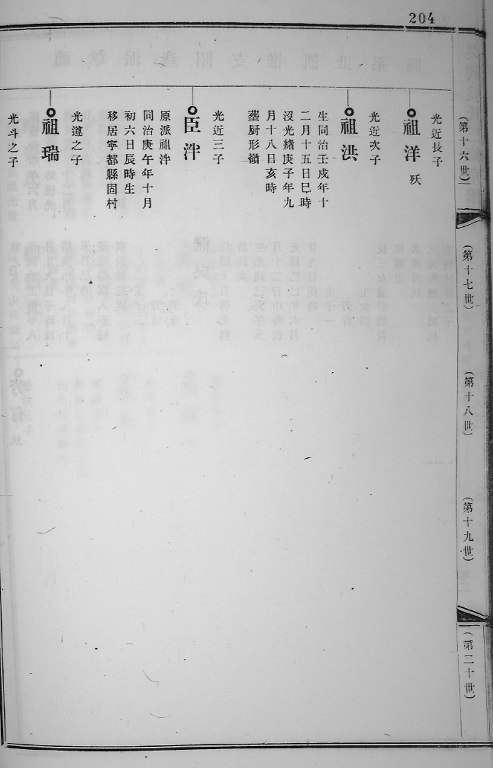 204
(第十六世)
(第十七世)
(第十八世)
(第十九世)
(第二十世)
光近長子
祖洋 殀
光近次子
祖洪
生同治壬戌年十
二月十五日巳時
沒光緒庚子年九
月十八日亥時
塟厨形嶺
光近三子
臣泮
原派祖泮
同治庚午年十月
初六日辰時生
移居寧都縣固村
光邃之子
祖瑞
光斗之子